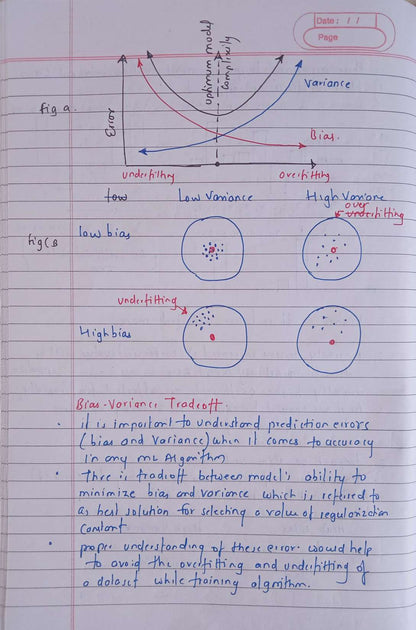 Date: / /
Page
optimum model
complexity
Variance
fig a.
Error
Bias.
underfitting
overfitting
low
Low Variance
High Variane
over
underfitting
fig(B
low bias
underfitting
High bias
Bias-Variance Tradeoff.
• it is important to understand prediction errors
(bias and variance) when it comes to accuracy
in any ML Algorithm
• There is tradeoff between model's ability to
minimize bias and variance which is refered to
as best solution for selecting a value of regularization
constant
• proper understanding of these error would help
to avoid the overfitting and underfitting of
a dataset while training algorithm.